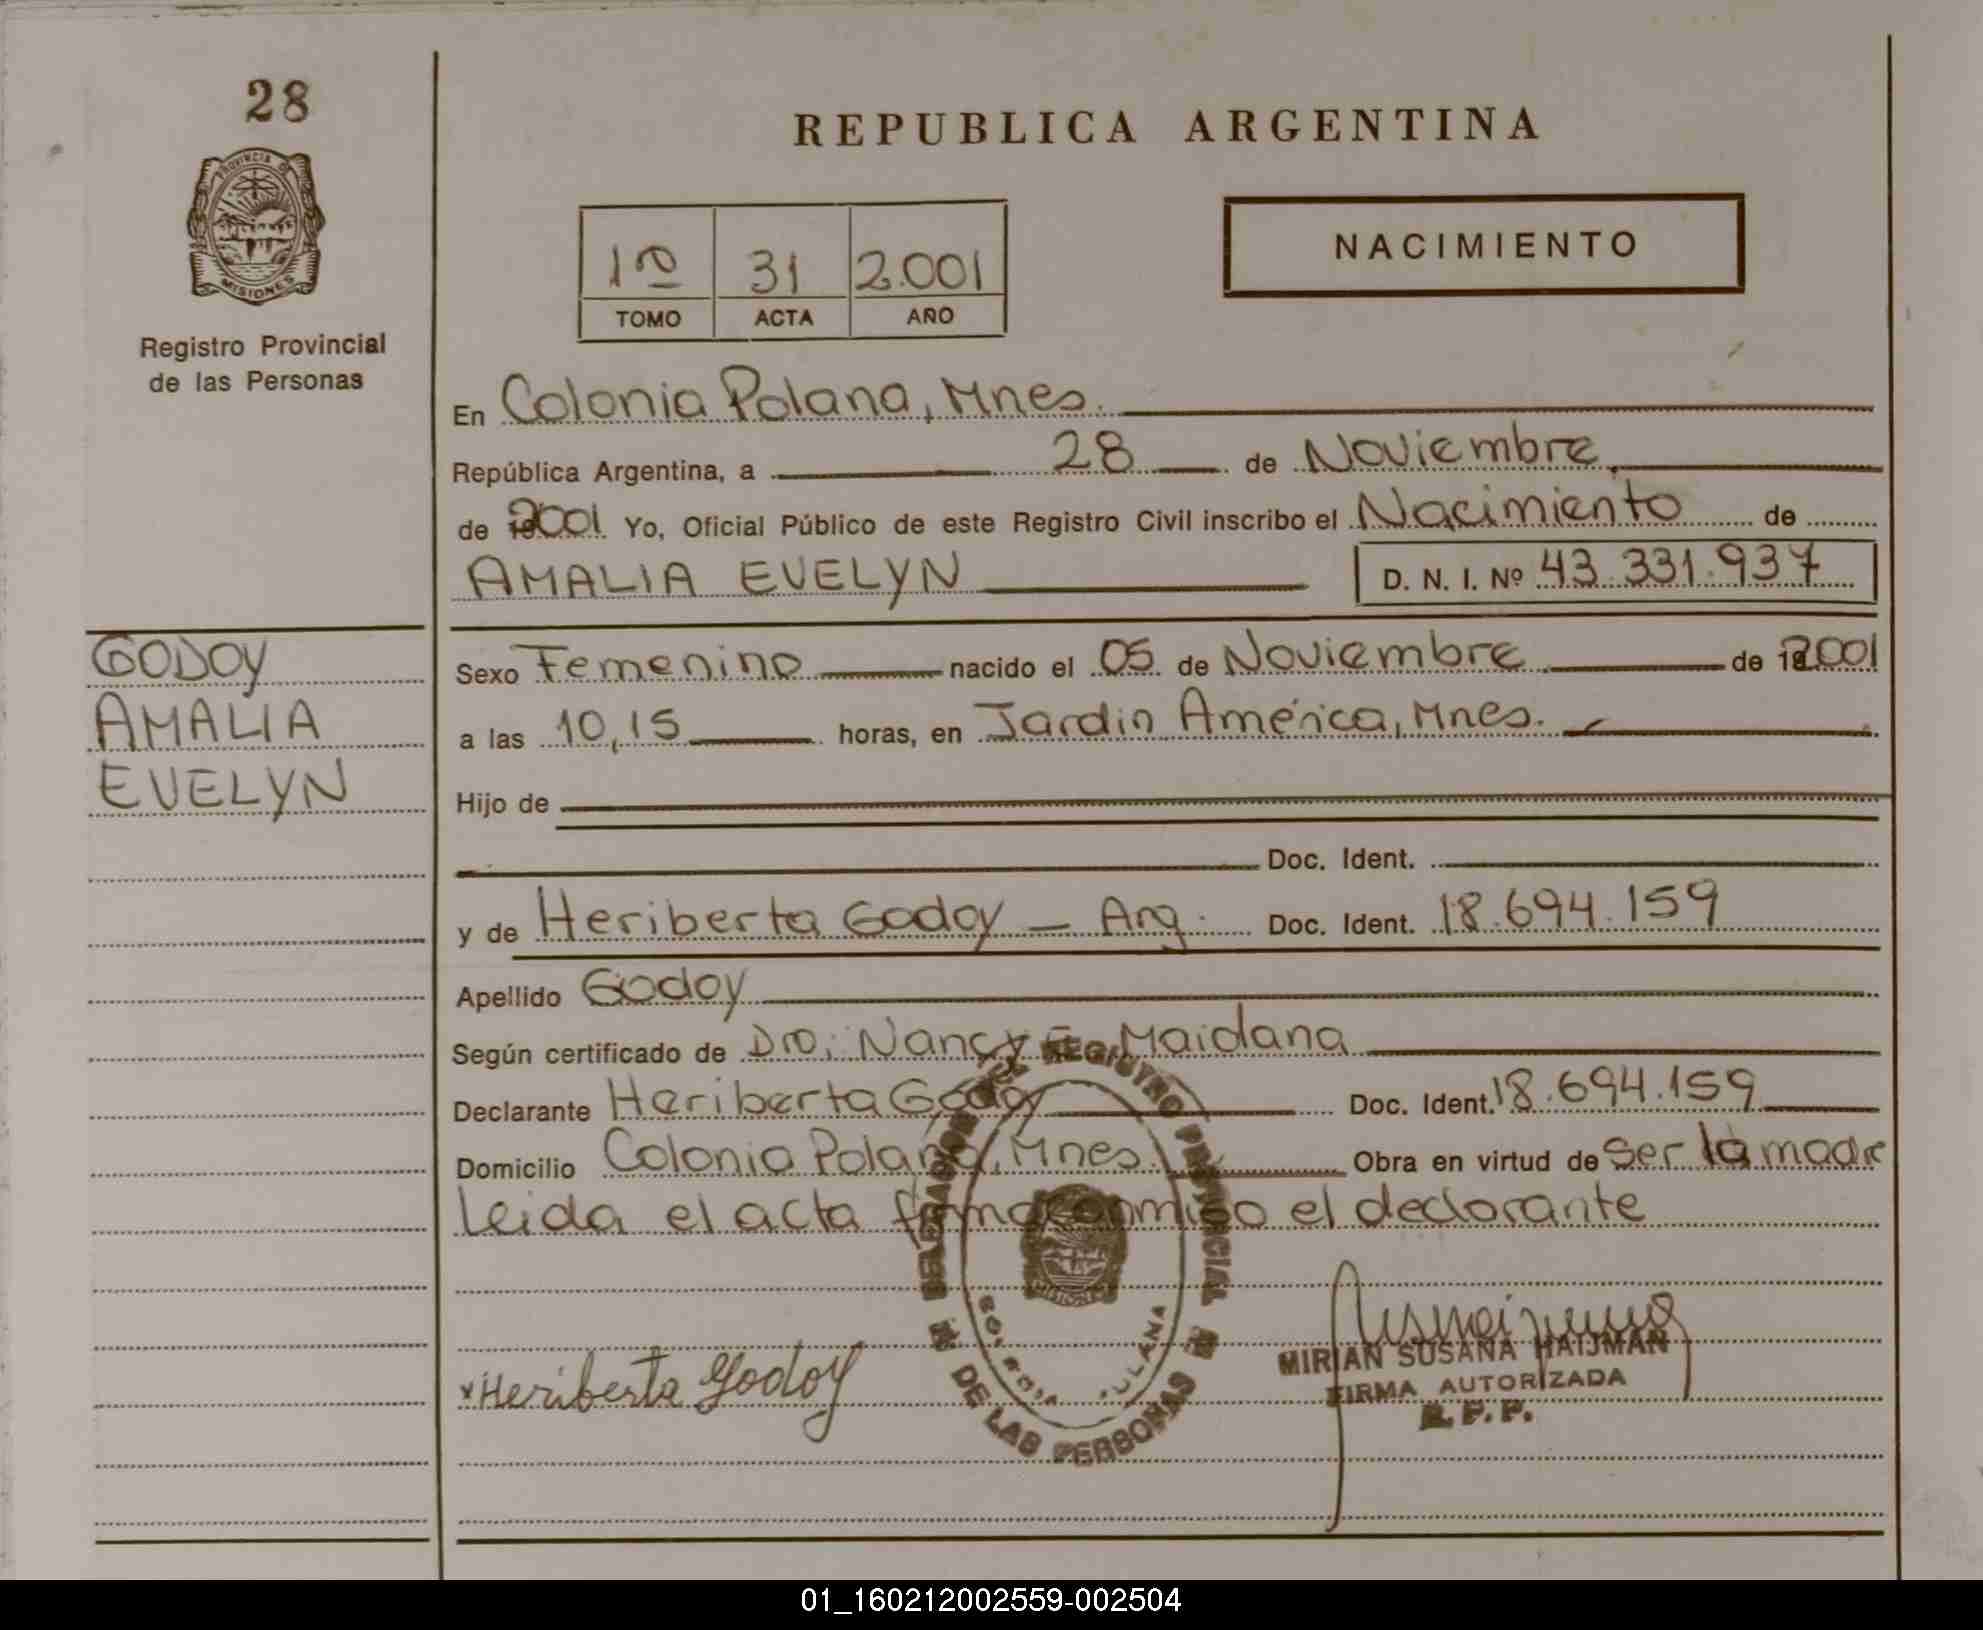 28
PROVINCIA DE
MISIONES
Registro Provincial
de las Personas
REPUBLICA ARGENTINA
1º 31 2.001
TOMO ACTA AÑO
NACIMIENTO
En Colonia Polana, Mnes.
República Argentina, a 28 de Noviembre
de 2001 Yo, Oficial Público de este Registro Civil inscribo el Nacimiento de
AMALIA EVELYN D. N. I. Nº 43.331.937
GODOY
AMALIA
EVELYN
Sexo Femenino nacido el 05 de Noviembre de 2001
a las 10,15 horas, en Jardin América, Mnes.
Hijo de
Doc. Ident.
y de Heriberta Godoy - Arg. Doc. Ident. 18.694.159
Apellido Godoy
Según certificado de Dra. Nancy E. Maidana
Declarante Heriberta Godoy Doc. Ident. 18.694.159
Domicilio Colonia Polana, Mnes. Obra en virtud de ser la madre
Leida el acta firma conmigo el declarante
DELEGACION DEL REGISTRO PROVINCIAL
DE LAS PERSONAS
MISIONES
x Heriberta Godoy
MIRIAN SUSANA HAIJMAN
FIRMA AUTORIZADA
R. P. P.
01_160212002559-002504